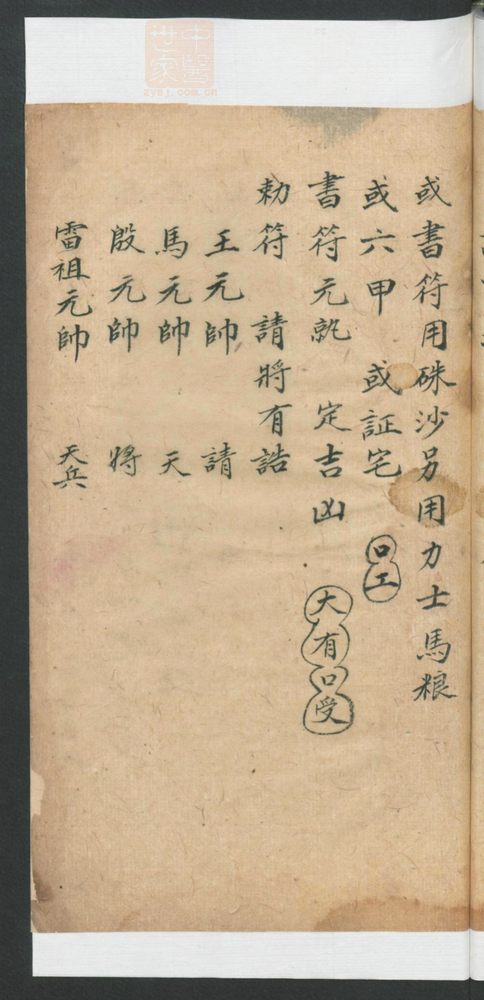 或書符用硃沙另用力士馬粮
或六甲 或証宅 口工
書符元孰 定吉凶 大有口受
勅符 請將有誥
王元帥 請
馬元帥 天
殷元帥 將
雷祖元帥 天兵
中醫世家
zysj.com.cn